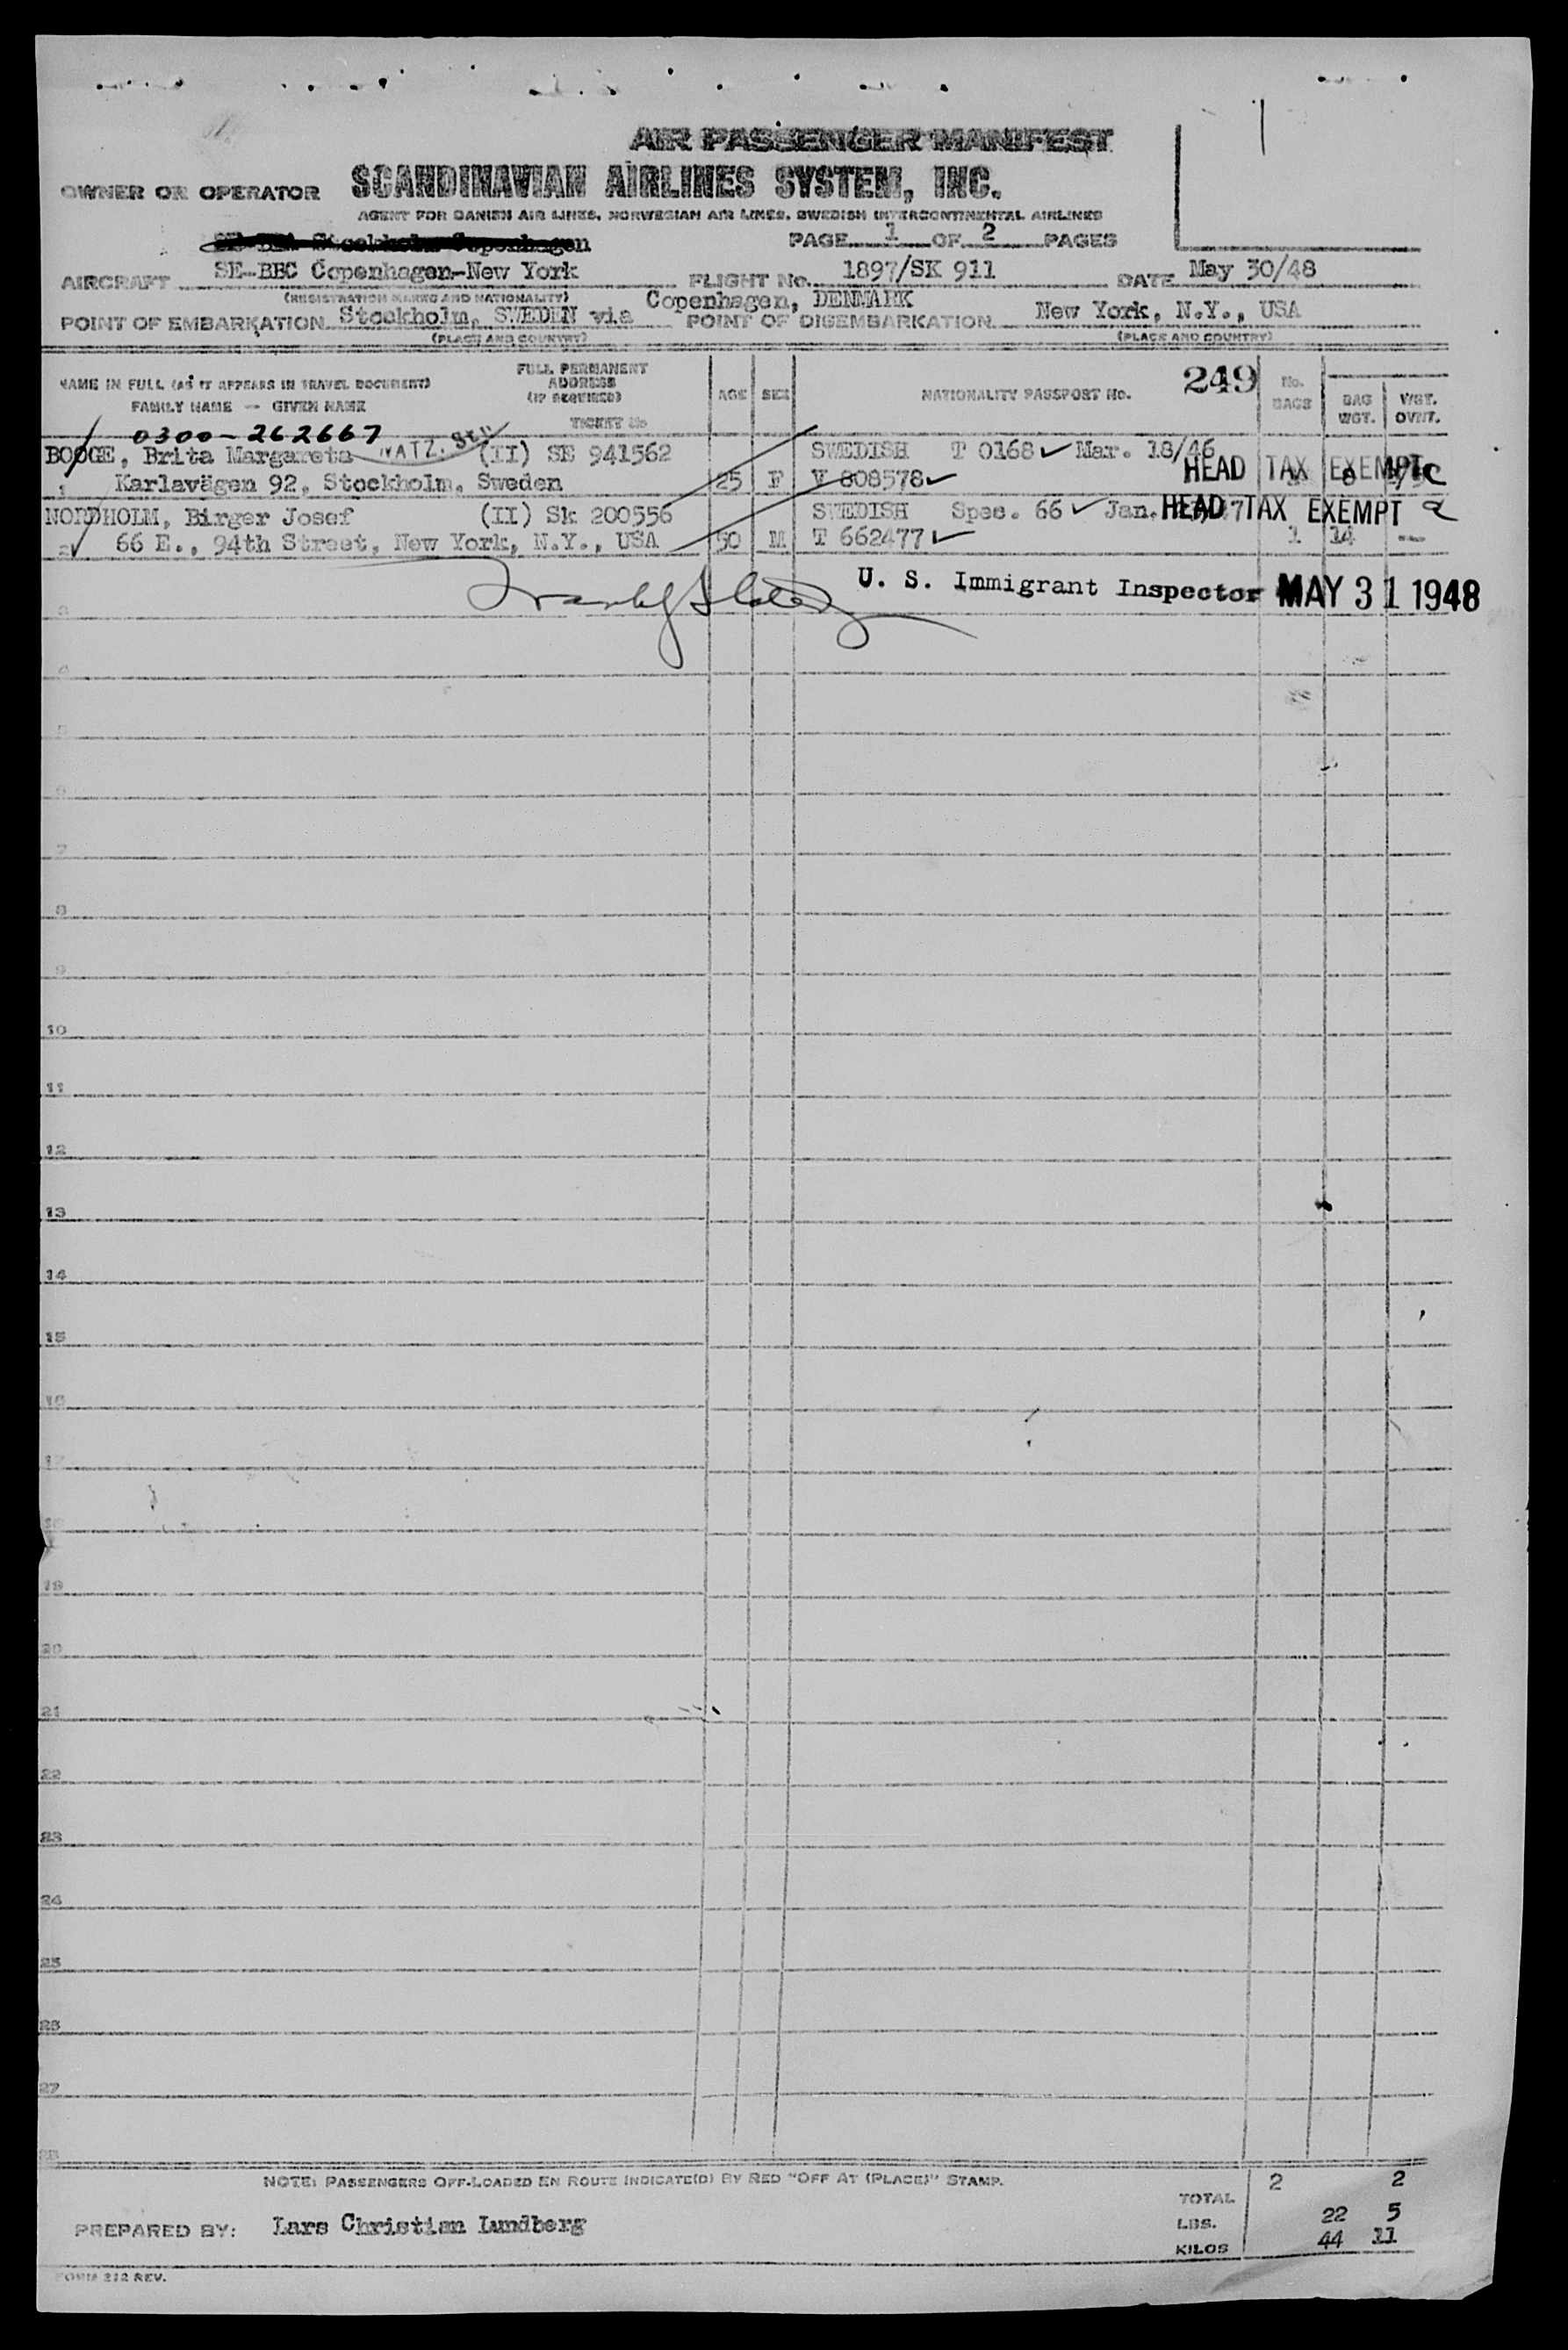 AIR PASSENGER MANIFEST
OWNER OR OPERATOR SCANDINAVIAN AIRLINES SYSTEM, INC.
AGENT FOR DANISH AIR LINES, NORWEGIAN AIR LINES, SWEDISH INTERCONTINENTAL AIRLINES
Stockholm-Copenhagen
PAGE 1 OF 2 PAGES
AIRCRAFT SE-BBC Copenhagen-New York FLIGHT No. 1897/SK 911 DATE May 30/48
(REGISTRATION MARKS AND NATIONALITY)
POINT OF EMBARKATION Stockholm, SWEDEN via Copenhagen, DENMARK POINT OF DISEMBARKATION New York, N.Y., USA
(PLACE AND COUNTRY) (PLACE AND COUNTRY)
NAME IN FULL (AS IT APPEARS IN TRAVEL DOCUMENT)
FAMILY NAME — GIVEN NAME
FULL PERMANENT
ADDRESS
(IF REQUIRED)
TICKET No
AGE SEX NATIONALITY PASSPORT No. 249 No.
BAGS BAG
WGT. WGT.
OVWT.
0300-262667
BOOGE, Brita Margareta NATZ. (II) SE 941562 SWEDISH T 0168 Mar. 18/46
HEAD TAX EXEMPT
1 Karlavägen 92, Stockholm, Sweden 25 F V 808578
NORDHOLM, Birger Josef (II) Sk 200556 SWEDISH Spec. 66 Jan.
HEAD TAX EXEMPT
2 66 E., 94th Street, New York, N.Y., USA 50 M T 662477 1 14 —
U. S. Immigrant Inspector MAY 31 1948
3
4
5
6
7
8
9
10
11
12
13
14
15
16
17
18
19
20
21
22
23
24
25
26
27
28
NOTE: PASSENGERS OFF-LOADED EN ROUTE INDICATE(D) BY RED "OFF AT (PLACE)" STAMP.
TOTAL 2 2
LBS. 22 5
KILOS 44 11
PREPARED BY: Lars Christian Lundberg
FORM 212 REV.